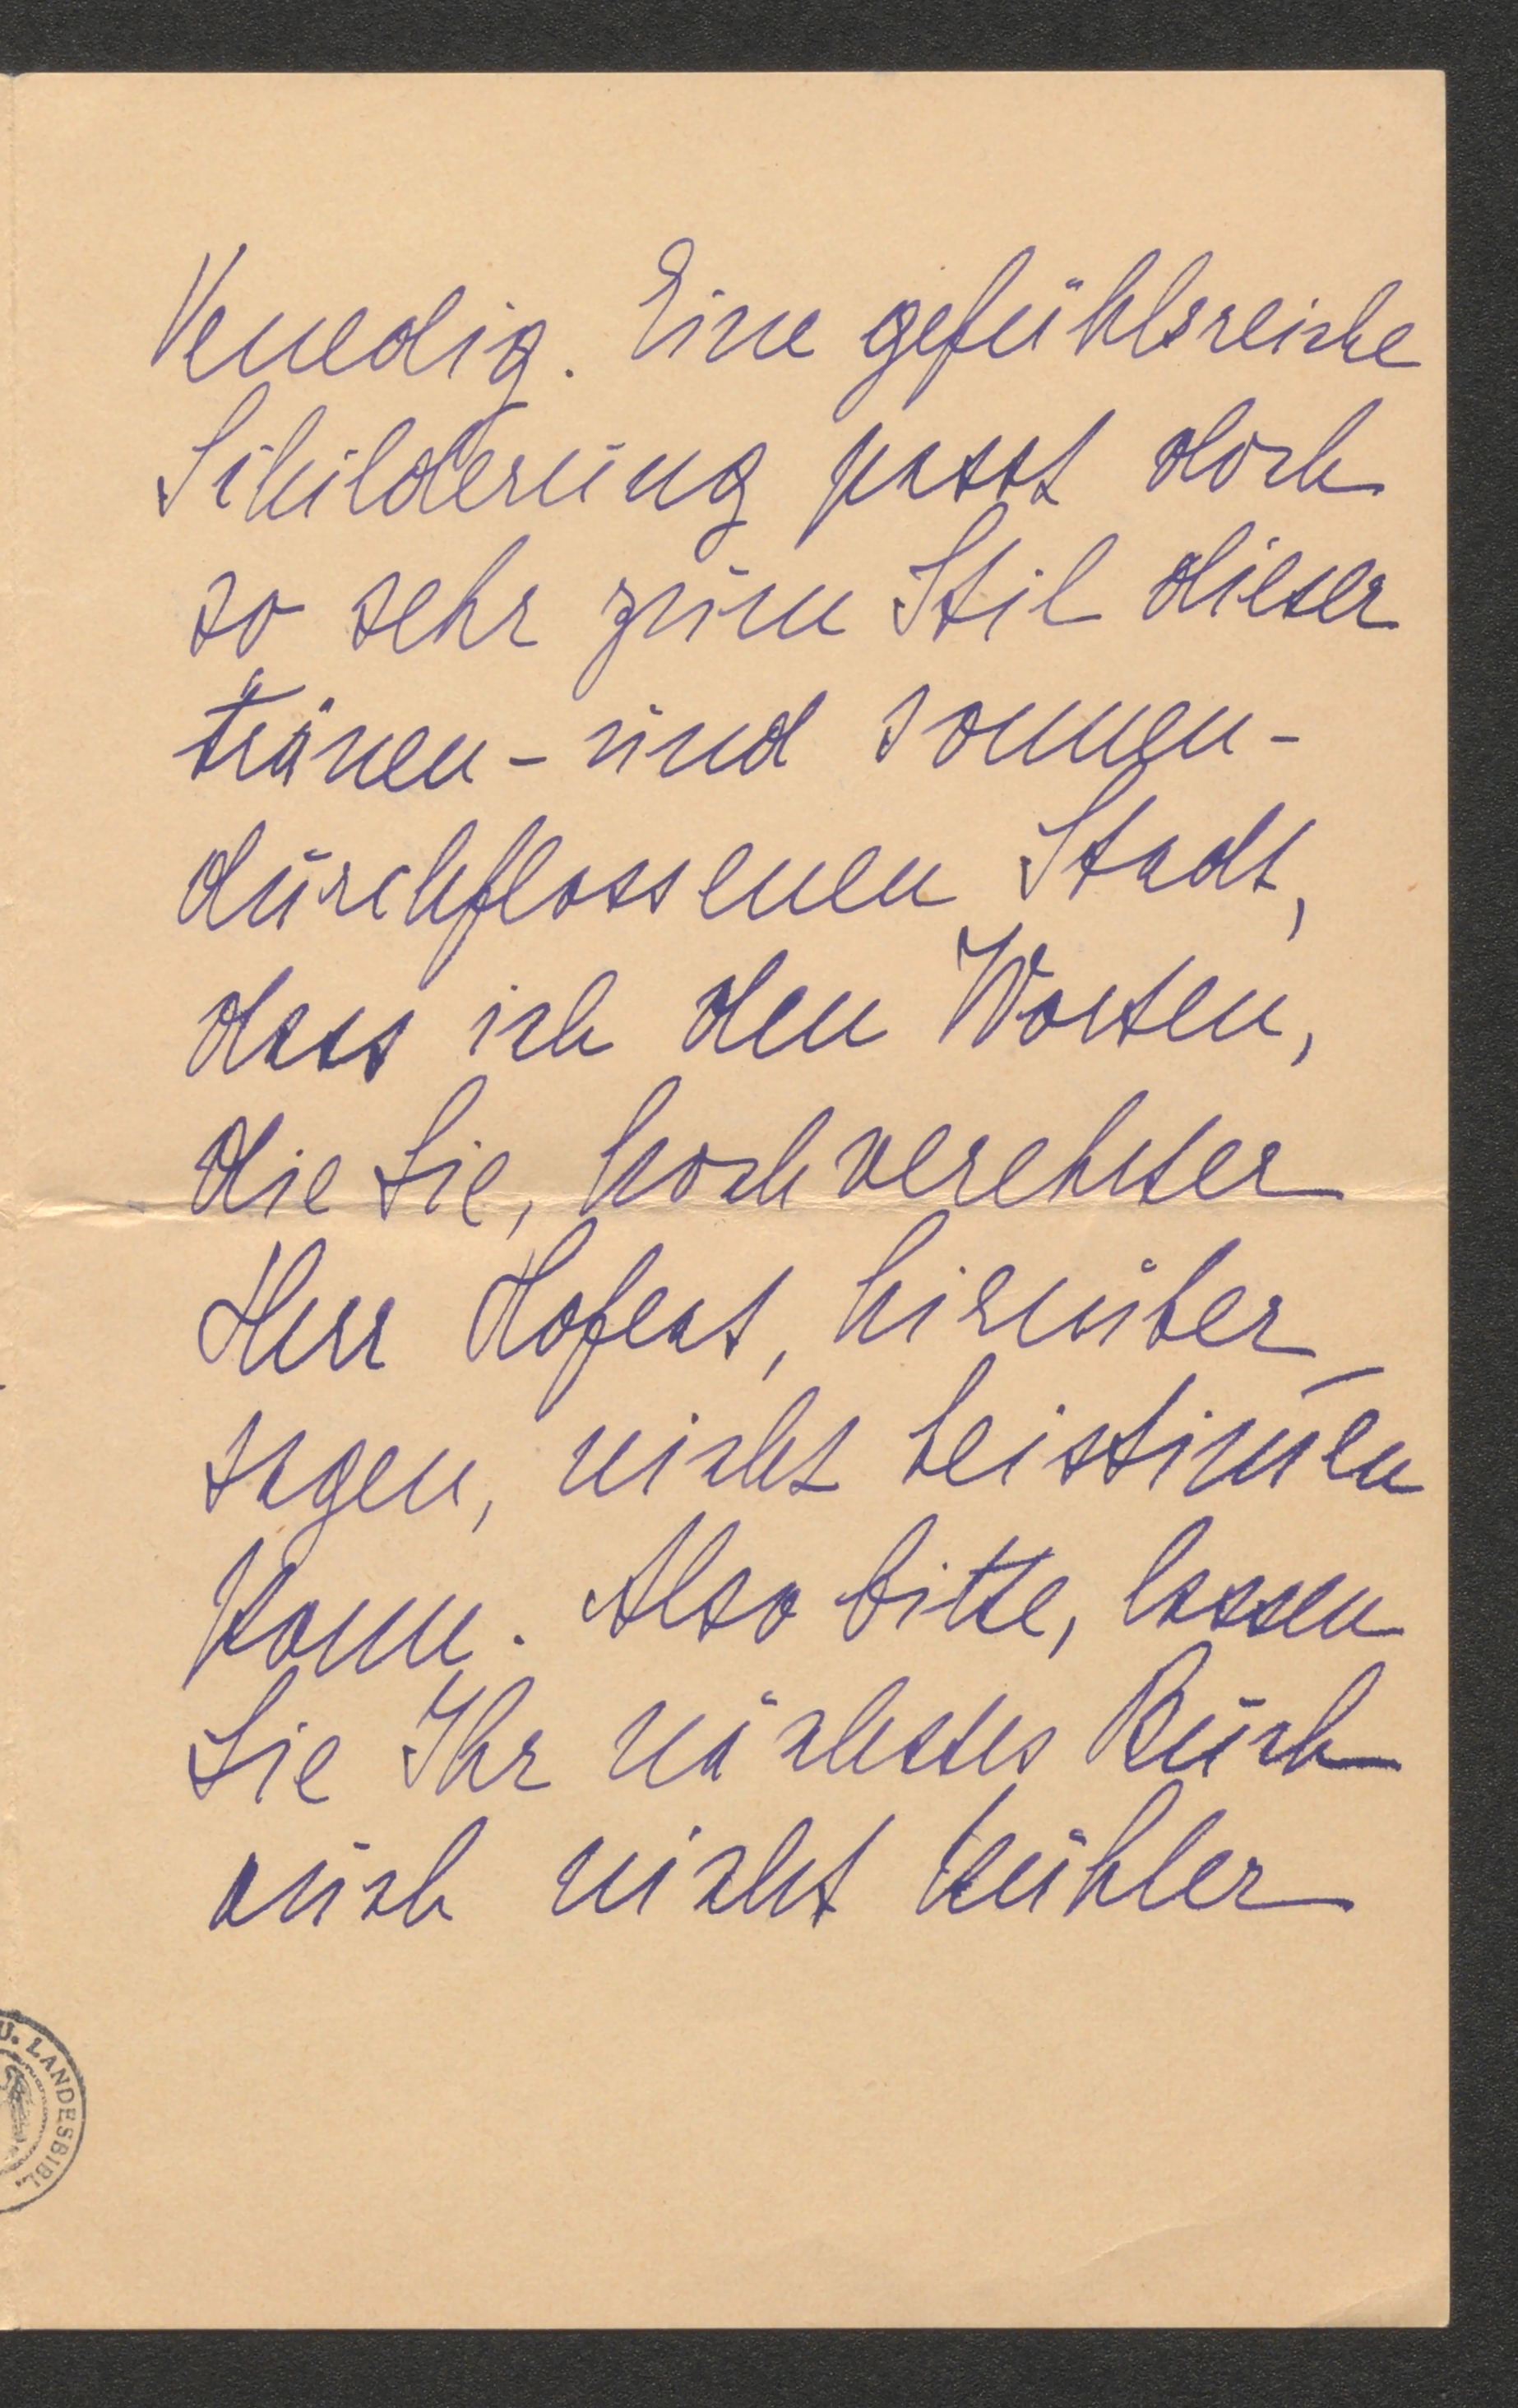 Venedig. Eine gefühlsreiche
Schilderung passt doch
so sehr zum Stil dieser
tränen- und sonnen-
durchflossenen Stadt,
dass ich den Worten,
die Sie, hochverehrter
Herr Hofrat, hierüber
sagen, nicht beistim̄en
kann. Also bitte, lassen
Sie Ihr nächstes Buch
auch nicht kühler
U. LANDESBIBL.